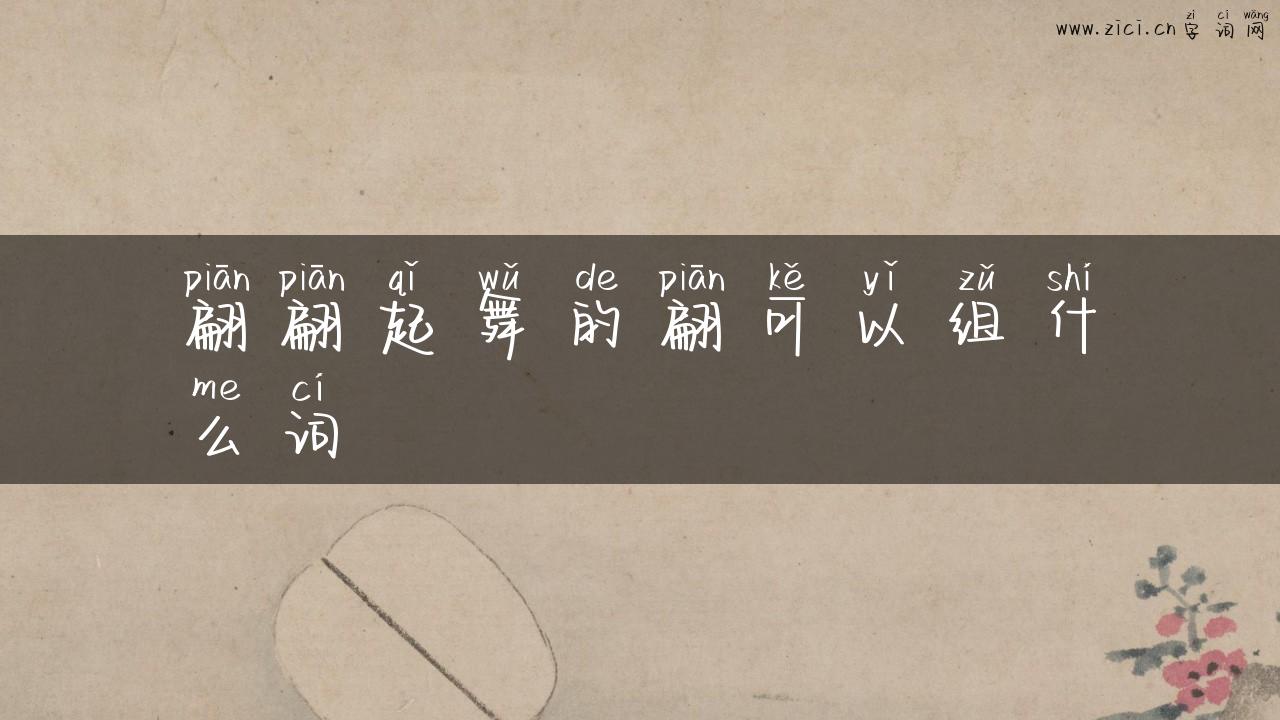 zì cí wǎng
www.zici.cn 字词网
piān piān qǐ wǔ de piān kě yǐ zǔ shí
翩翩起舞的翩可以组什
me cí
么词